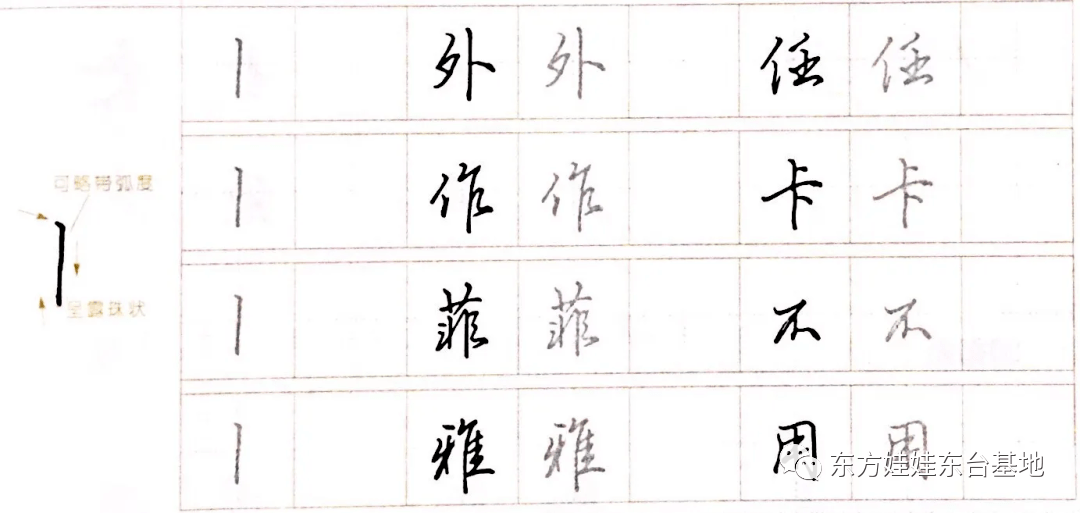 丨 外 外 任 任
可略带弧度
丨 作 作 卡 卡
呈露珠状
丨 菲 菲 不 不
丨 雅 雅 用 用
东方娃娃东台基地